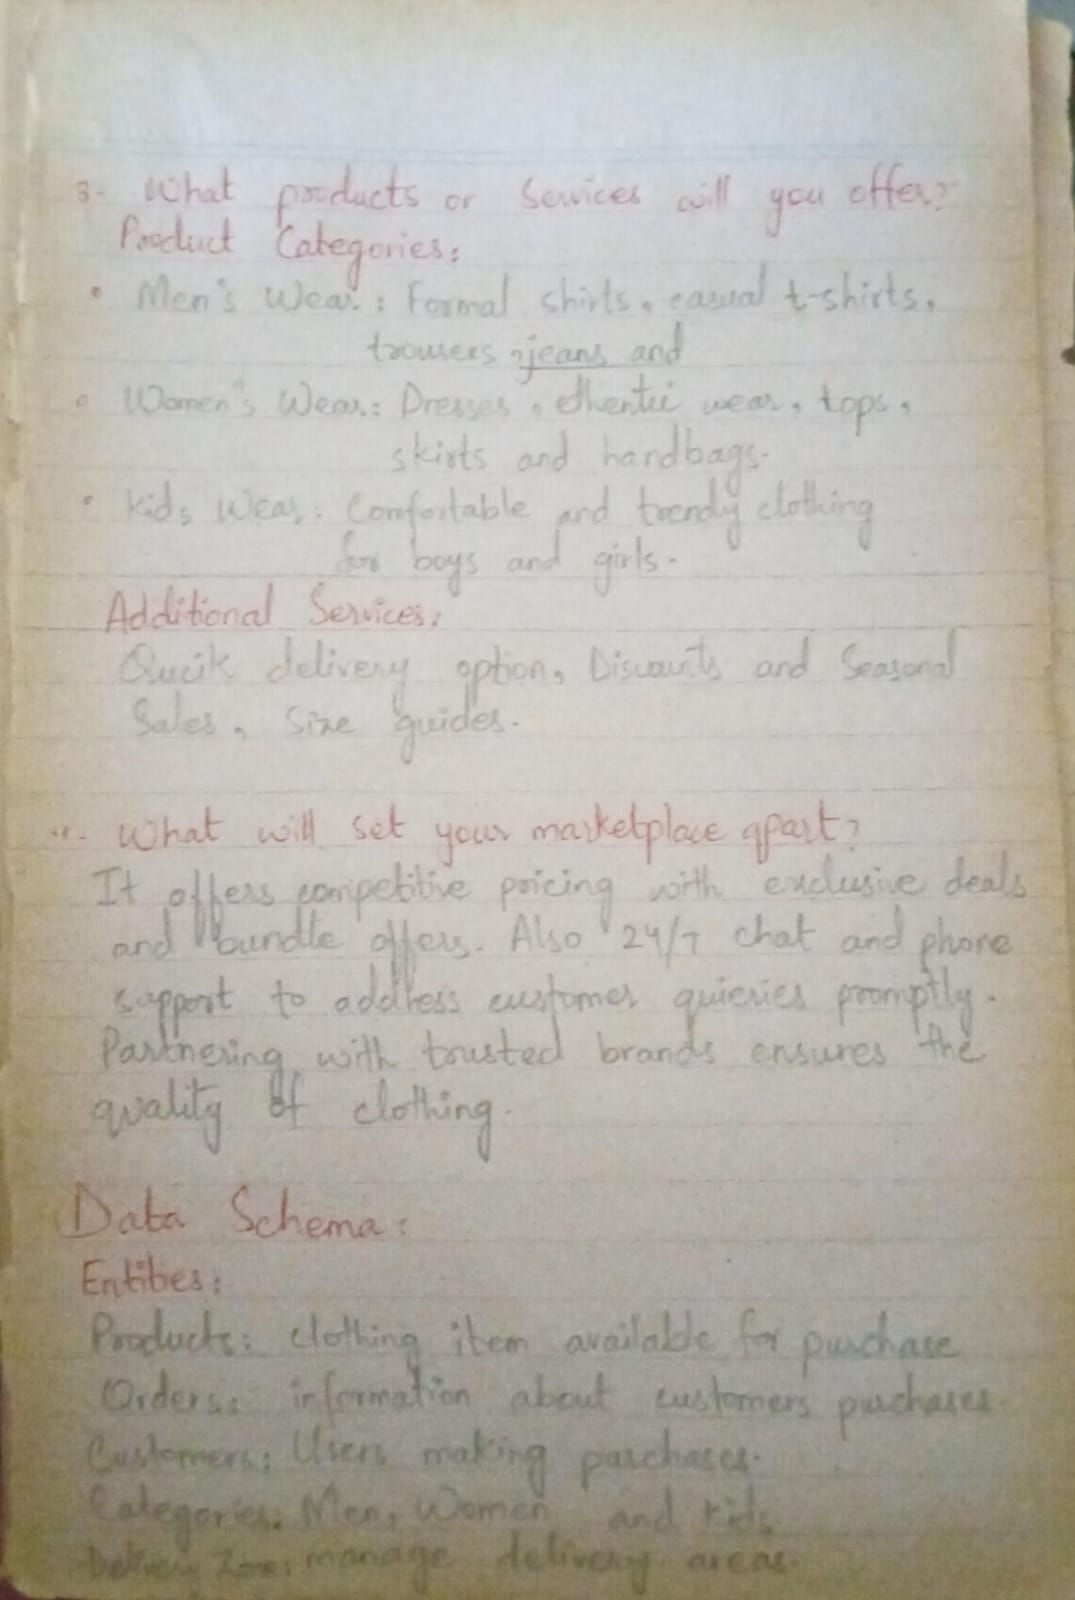 3- What products or Services will you offer?
Product Categories:
• Men's Wear : Formal shirts, casual t-shirts,
trousers, jeans and
• Women's Wear: Dresses, ethentic wear, tops,
skirts and handbags.
• Kids Wear: Comfortable and trendy clothing
for boys and girls.
Additional Services:
Qucik delivery option, Discounts and Seasonal
Sales, Size guides.
4- What will set your marketplace apart?
It offers competitive pricing with exclusive deals
and bundle offers. Also 24/7 chat and phone
support to address customer quieries promptly.
Partnering with trusted brands ensures the
quality of clothing.
Data Schema:
Entities:
Products: clothing item available for purchase
Orders: information about customers purchases.
Customers: Users making purchases.
Categories: Men, Women and Kids
Delivery Zone: manage delivery areas.